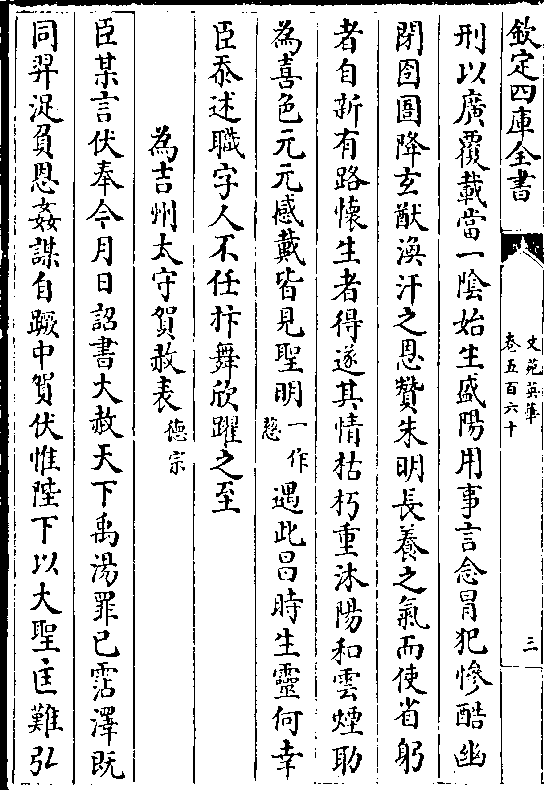 欽定四庫全書
文苑英華
卷五百六十
三
刑以廣覆載當一陰始生盛陽用事言念冒犯慘酷幽
閉囹圄降玄猷渙汗之恩贊朱明長養之氣而使省躬
者自新有路懷生者得遂其情枯朽重沐陽和雲煙助
為喜色元元感戴皆見聖明一作慈遇此昌時生靈何幸
臣忝述職字人不任抃舞欣躍之至
為吉州太守賀赦表德宗
臣某言伏奉今月日詔書大赦天下禹湯罪已霑澤既
同羿浞負恩姦謀自蹶中賀伏惟陛下以大聖匡難弘